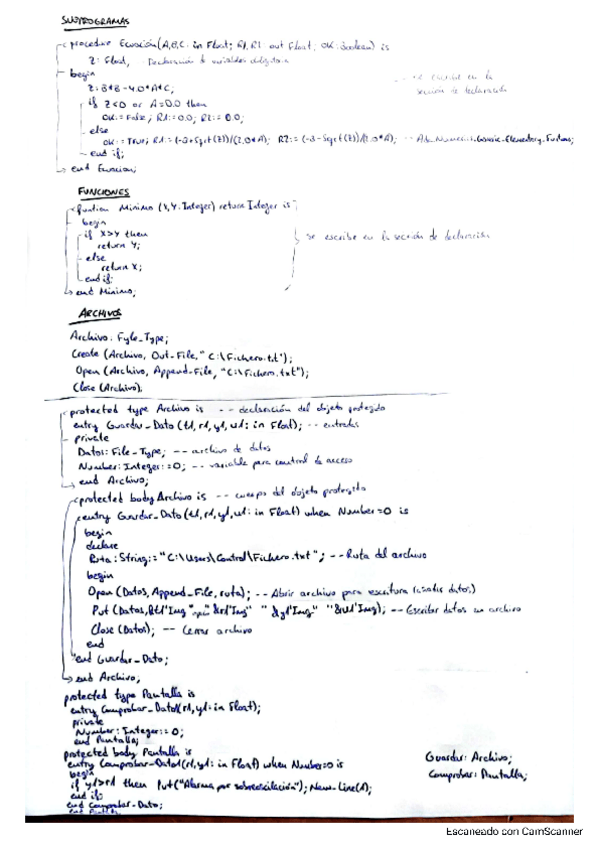 SUBPROGRAMAS
procedure Ecuación (A,B,C: in Float; R1, R2: out Float; OK: Boolean) is
Z: Float; -- Declaración de variables
begin
Z:=B*B-4.0*A*C;
-- se escribe en la
sección de declaración
if Z<0 or A=0.0 then
OK:= False; R1:=0.0; R2:= 0.0;
else
OK:= True; R1:= (-B+Sqrt(Z))/(2.0*A); R2:= (-B-Sqrt(Z))/(2.0*A); -- Ada.Numerics.Generic_Elementary_Functions;
end if;
end Ecuacion;
FUNCIONES
function Minimo (X,Y: Integer) return Integer is
begin
if X>Y then
return Y;
else
return X;
end if;
end Minimo;
se escribe en la sección de declaración
ARCHIVOS
Archivo: Fyle_Type;
Create (Archivo, Out-File, "C:\Fichero.txt");
Open (Archivo, Append-File, "C:\Fichero.txt");
Close (Archivo);
protected type Archivo is -- declaración del objeto protegido
entry Guardar_Dato (t1, r1, y1, u1: in Float); -- entradas
private
Datos: File_Type; -- archivo de datos
Number: Integer:=0; -- variable para control de acceso
end Archivo;
protected body Archivo is -- cuerpo del objeto protegido
entry Guardar_Dato (t1, r1, y1, u1: in Float) when Number=0 is
begin
declare
Ruta: String:= "C:\Users\Control\Fichero.txt"; -- Ruta del archivo
begin
Open (Datos, Append_File, ruta); -- Abrir archivo para escritura (añadir datos)
Put (Datos, &t1'Img " " &r1'Img " " &y1'Img " " &u1'Img); -- Escribir datos en archivo
Close (Datos); -- Cerrar archivo
end
end Guardar_Dato;
end Archivo;
protected type Pantalla is
entry Comprobar_Dato1(r1, y1: in Float);
private
Number: Integer:= 0;
end Pantalla;
protected body Pantalla is
entry Comprobar_Dato1(r1, y1: in Float) when Number=0 is
begin
if y1>r1 then Put("Alarma por sobreoscilación"); New_Line(1);
end if;
end Comprobar_Dato;
end Pantalla
Guardar: Archivo;
Comprobar: Pantalla;
Escaneado con CamScanner